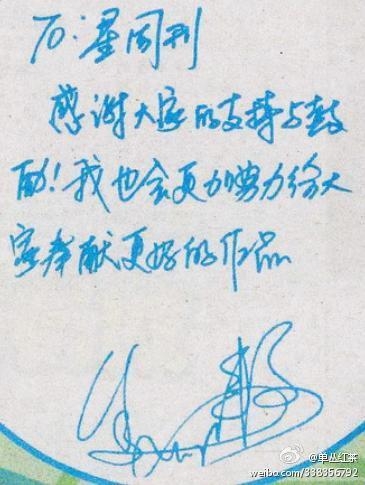 TO：星周刊
感谢大家的支持与鼓
励！我也会更加努力给大
家奉献更好的作品
@单丛红茶
weibo.com/338356792